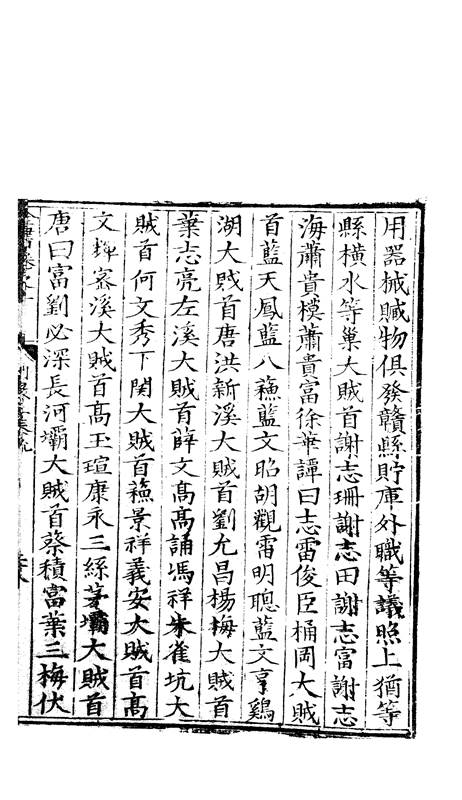 用器械贓物俱發贛縣貯庫外職等議照上猶等
縣橫水等巢大賊首謝志珊謝志田謝志富謝志
海蕭貴模蕭貴富徐華譚曰志雷俊臣桶岡大賊
首藍天鳳藍八蘓藍文昭胡觀雷明聰藍文亨鷄
湖大賊首唐洪新溪大賊首劉允昌楊梅大賊首
葉志亮左溪大賊首薛文高高誦馮祥朱雀坑大
賊首何文秀下関大賊首蘓景祥義安大賊首高
文輝宻溪大賊首高玉瑄康永三絲茅壩大賊首
唐曰富劉必深長河壩大賊首蔡積富葉三梅伏